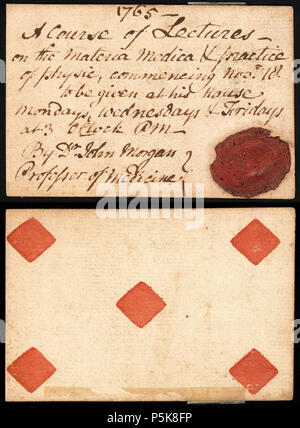 1765 —
A Course of Lectures —
on the Materia Medica & practice
of physic, commencing Novr. 18th
to be given at his House
Mondays, Wednesdays & Fridays
at 3 o'Clock P.M —
By Dr. John Morgan
Professor of Medicine
alamy
Image ID: P5K8FP
www.alamy.com